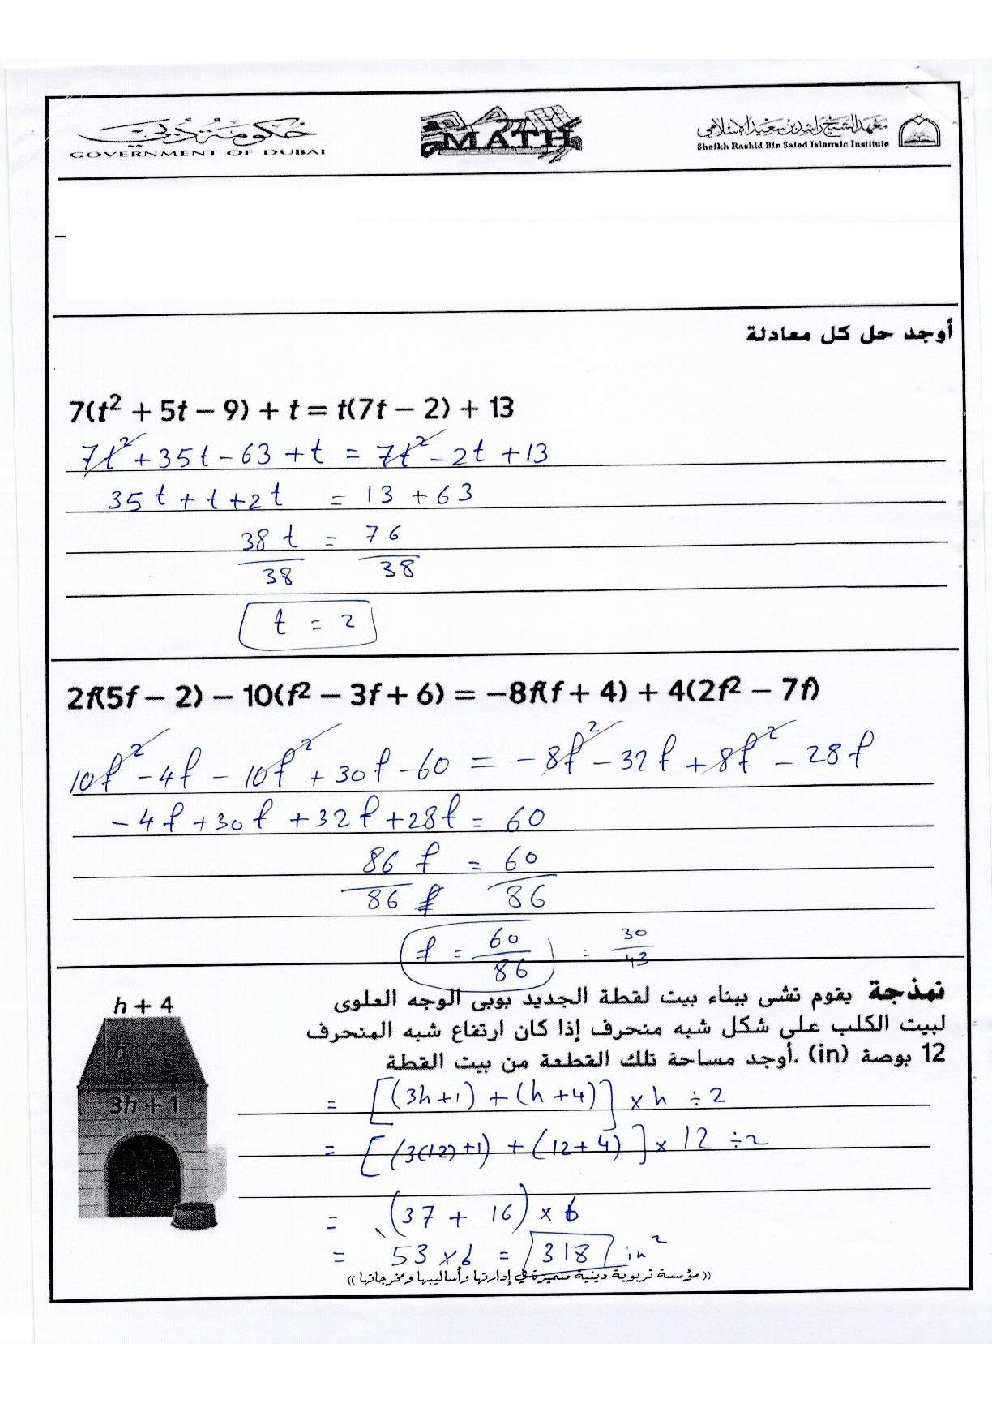 حكومة دبي
GOVERNMENT OF DUBAI
MATH
معهد الشيخ راشد بن سعيد الإسلامي
Sheikh Rashid Bin Saied Islamic Institute
أوجد حل كل معادلة
7(t² + 5t – 9) + t = t(7t – 2) + 13
7t² + 35t - 63 + t = 7t² - 2t + 13
35t + t + 2t = 13 + 63
38 t = 76
38 38
t = 2
2f(5f – 2) – 10(f² – 3f + 6) = –8f(f + 4) + 4(2f² – 7f)
10f² - 4f - 10f² + 30f - 60 = - 8f² - 32f + 8f² - 28f
- 4f + 30f + 32f + 28f = 60
86 f = 60
86 86
f = 60/86 = 30/43
نمذجة يقوم تشى ببناء بيت لقطة الجديد بوبى الوجه العلوى
لبيت الكلب على شكل شبه منحرف إذا كان ارتفاع شبه المنحرف
12 بوصة (in) .أوجد مساحة تلك القطعة من بيت القطة
h + 4
h
3h + 1
= [(3h+1) + (h+4)] × h ÷ 2
= [(3(12)+1) + (12+4)] × 12 ÷ 2
= (37 + 16) × 6
= 53 × 6 = 318 in²
(( مؤسسة تربوية دينية متميزة في إدارتها وأساليبها ومخرجاتها ))